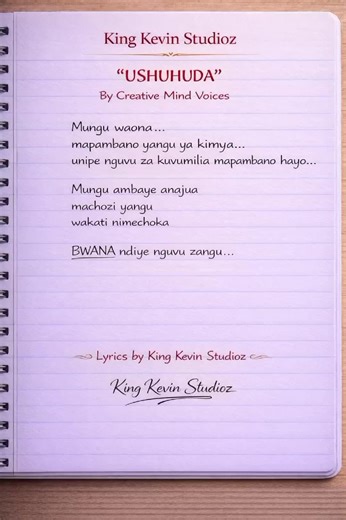 King Kevin Studioz
“USHUHUDA”
By Creative Mind Voices
Mungu waona...
mapambano yangu ya kimya...
unipe nguvu za kuvumilia mapambano hayo...
Mungu ambaye anajua
machozi yangu
wakati nimechoka
BWANA ndiye nguvu zangu...
Lyrics by King Kevin Studioz
King Kevin Studioz